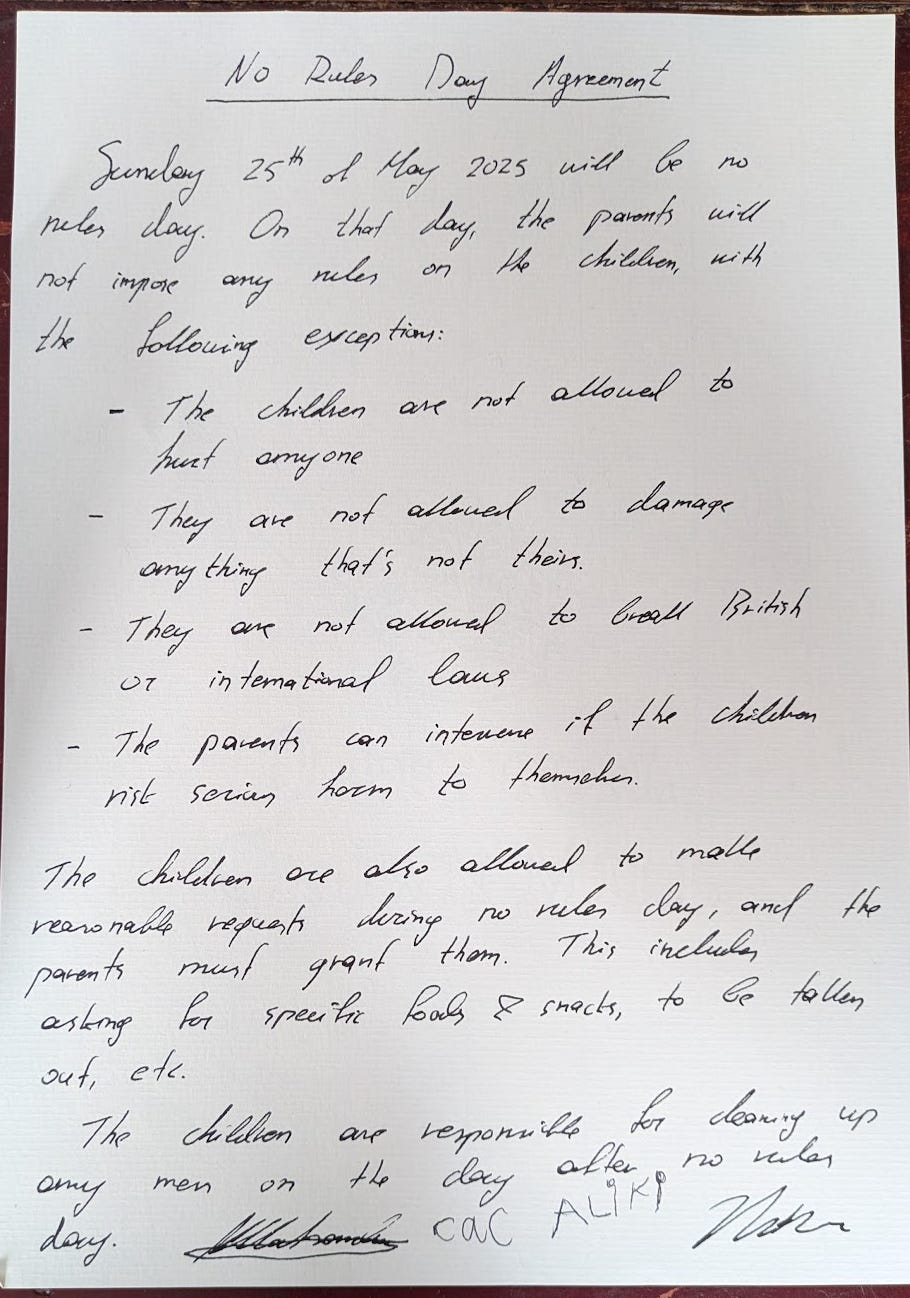 No Rules Day Agreement
Sunday 25th of May 2025 will be no
rules day. On that day, the parents will
not impose any rules on the children, with
the following exceptions:
- The children are not allowed to
hurt anyone
- They are not allowed to damage
anything that's not theirs.
- They are not allowed to break British
or international laws
- The parents can intervene if the children
risk serious harm to themselves.
The children are also allowed to make
reasonable requests during no rules day, and the
parents must grant them. This includes
asking for specific foods & snacks, to be taken
out, etc.
The children are responsible for cleaning up
any mess on the day after no rules
day. cac ALIKI